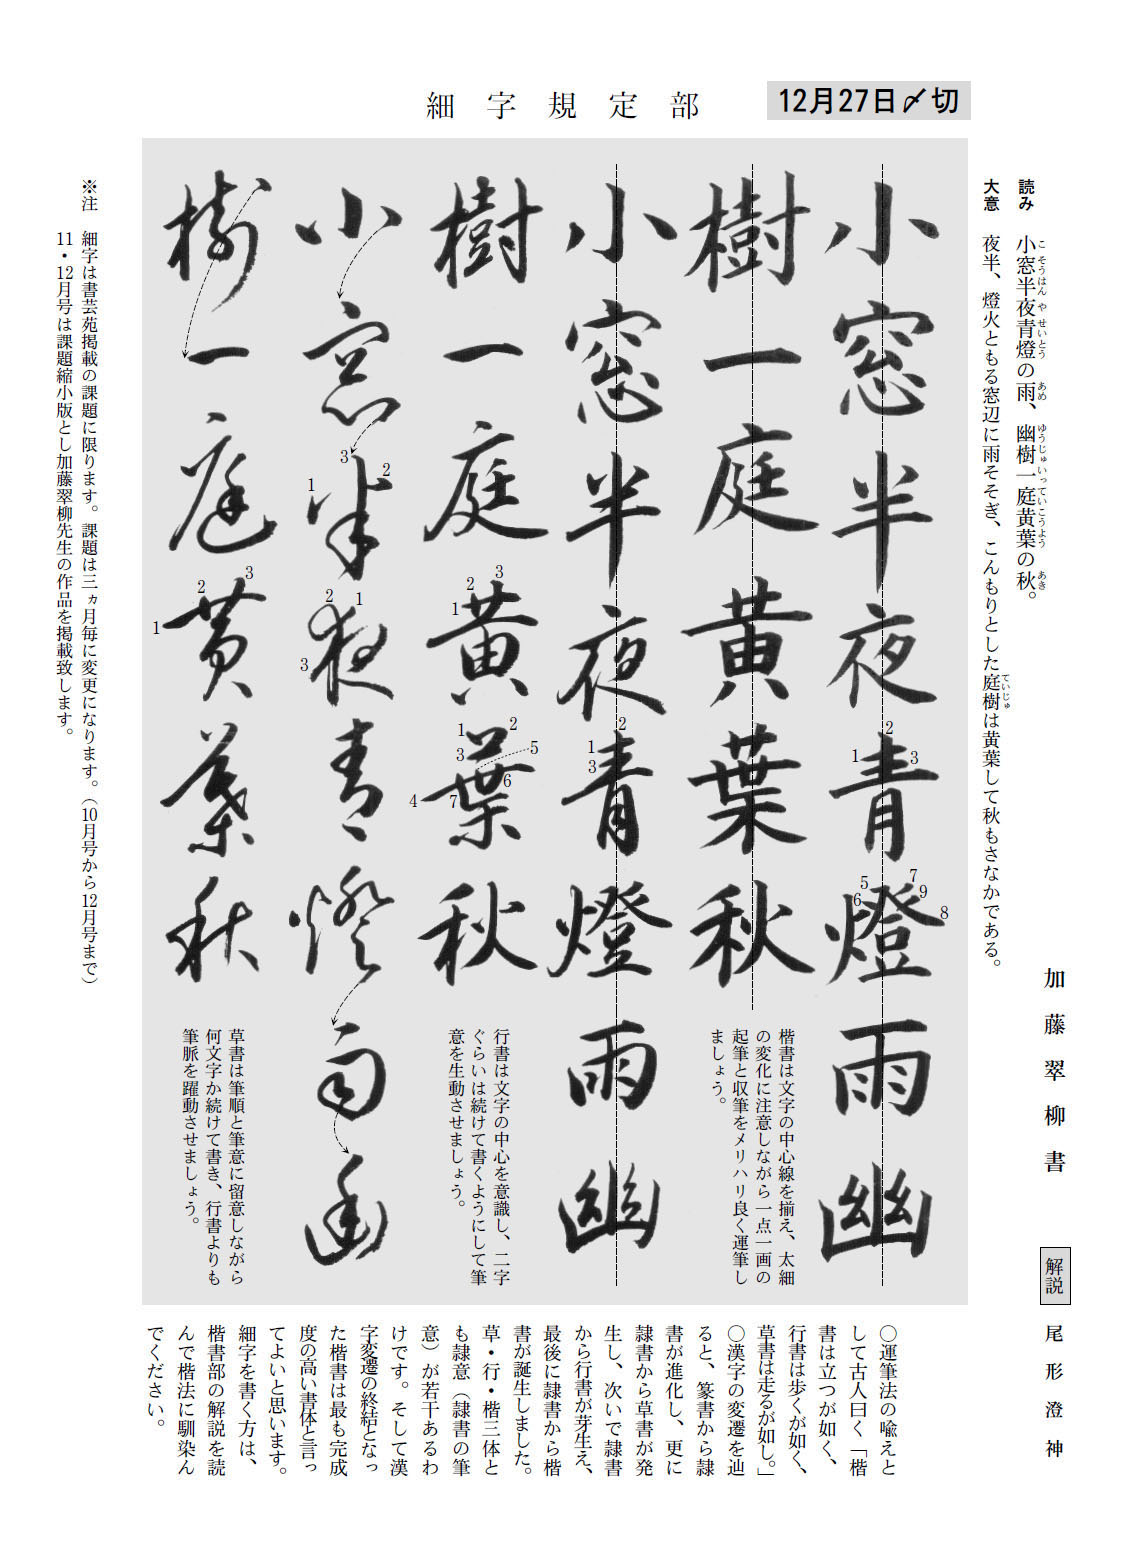 細字規定部
12月27日〆切
読み　小窓半夜青燈の雨、幽樹一庭黄葉の秋。
こ そうはん や せいとう あめ ゆうじゅ いっ てい こうよう あき
大意　夜半、燈火ともる窓辺に雨そそぎ、こんもりとした庭樹は黄葉して秋もさなかである。
ていじゅ
加藤翠柳書
小窓半夜青燈雨幽
樹一庭黄葉秋
楷書は文字の中心線を揃え、太細
の変化に注意しながら一点一画の
起筆と収筆をメリハリ良く運筆し
ましょう。
小窓半夜青燈雨幽
樹一庭黄葉秋
行書は文字の中心を意識し、二字
ぐらいは続けて書くようにして筆
意を生動させましょう。
小窓半夜青燈雨幽
樹一庭黄葉秋
草書は筆順と筆意に留意しながら
何文字か続けて書き、行書よりも
筆脈を躍動させましょう。
※注　細字は書芸苑掲載の課題に限ります。課題は三ヵ月毎に変更になります。（10月号から12月号まで）
11・12月号は課題縮小版とし加藤翠柳先生の作品を掲載致します。
解説　尾形澄神
○運筆法の喩えと
して古人曰く「楷
書は立つが如く、
行書は歩くが如く、
草書は走るが如し。」
○漢字の変遷を辿
ると、篆書から隷
書が進化し、更に
隷書から草書が発
生し、次いで隷書
から行書が芽生え、
最後に隷書から楷
書が誕生しました。
草・行・楷三体と
も隷意（隷書の筆
意）が若干あるわ
けです。そして漢
字変遷の終結となっ
た楷書は最も完成
度の高い書体と言っ
てよいと思います。
細字を書く方は、
楷書部の解説を読
んで楷法に馴染ん
でください。